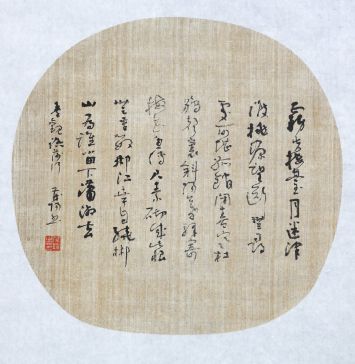 霧失樓台月迷津
渡桃源望斷無尋
處可堪孤館閉春寒杜
鵑聲裏斜陽暮驛寄
梅花魚傳尺素砌成此恨
無重數郴江幸自繞郴
山為誰留下瀟湘去
秦觀踏莎行